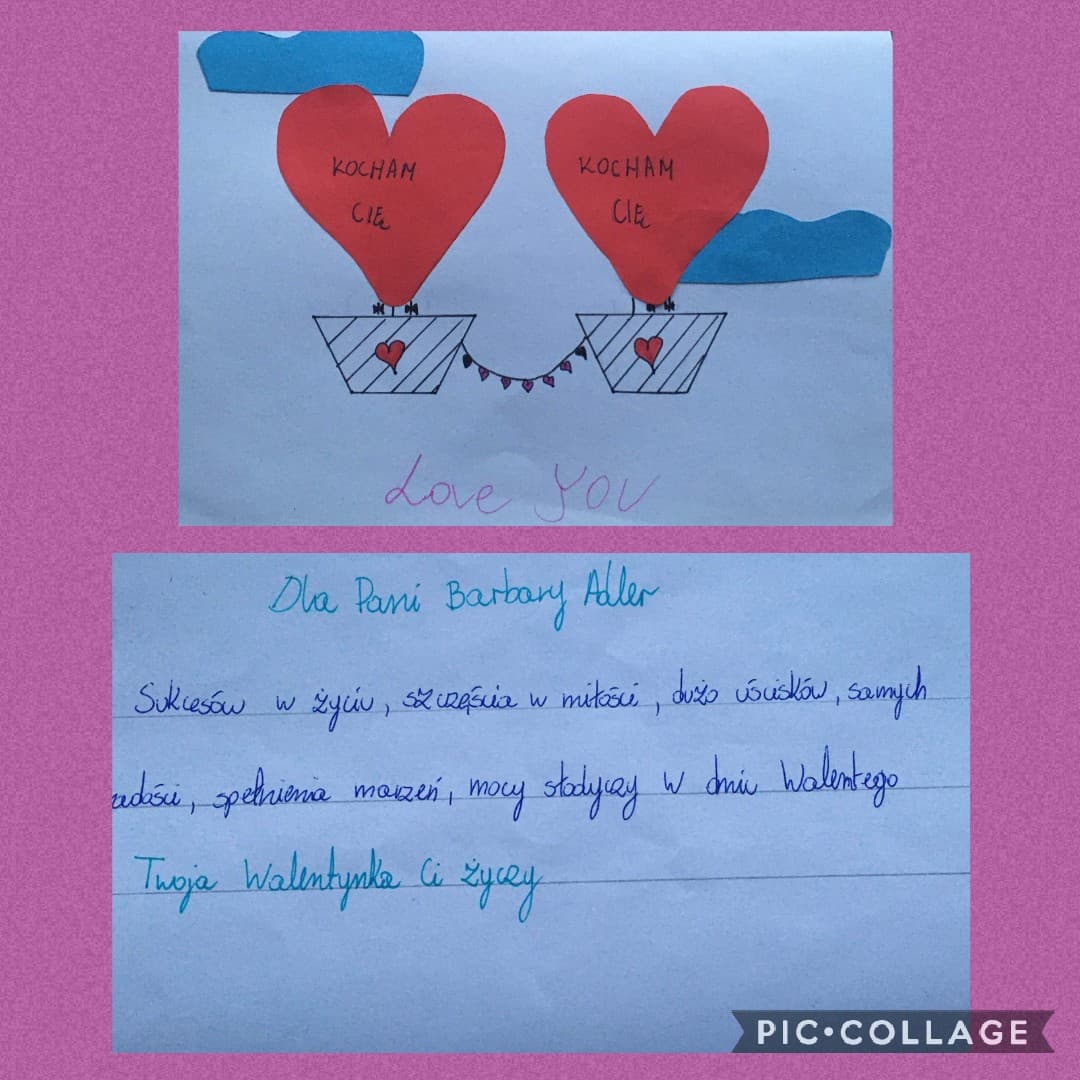 KOCHAM
CIĘ
KOCHAM
CIĘ
Love YOU
Dla Pani Barbary Adler
Sukcesów w życiu, szczęścia w miłości, dużo uścisków, samych
adości, spełnienia marzeń, mocy słodyczy w dniu Walentego
Twoja Walentynka Ci życzy
PIC•COLLAGE